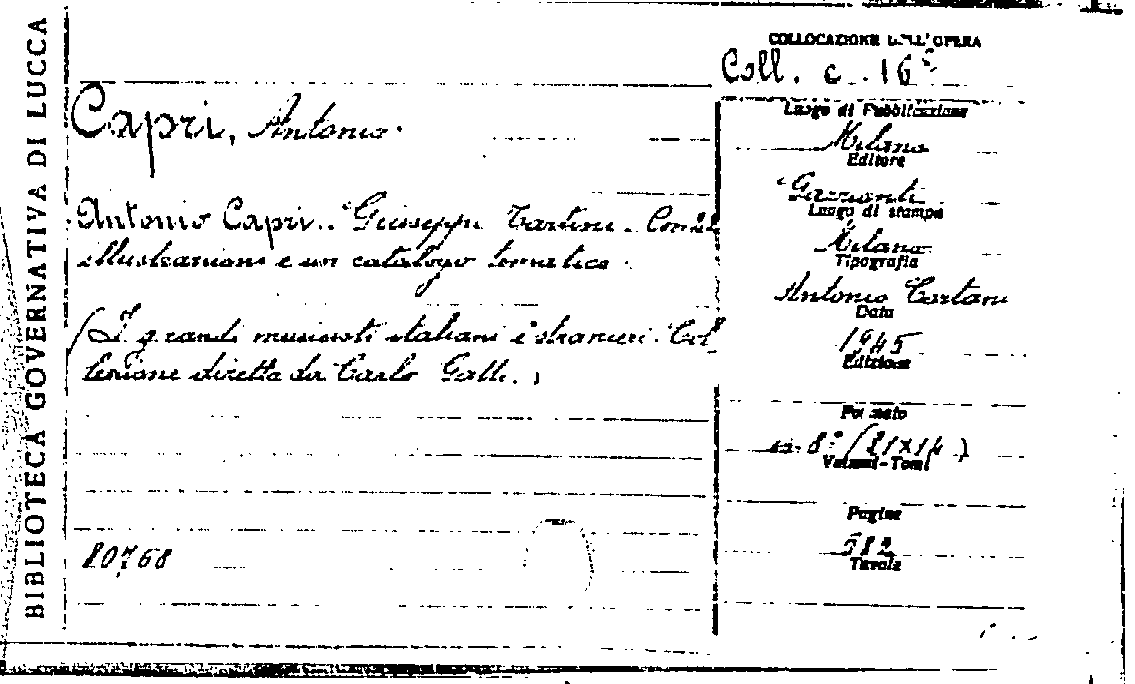 BIBLIOTECA GOVERNATIVA DI LUCCA
COLLOCAZIONE DELL'OPERA
Coll. c. 16
Capri, Antonio.
Antonio Capri. Giuseppe Tartini. Con
illustrazioni e un catalogo tematico.
(I grandi musicisti italiani e stranieri. Col
lezione diretta da Carlo Gatti.)
20768
Luogo di Pubblicazione
Milano
Editore
Garzanti
Luogo di stampa
Milano
Tipografia
Antonio
Data
1945
Edizione
Formato
in-8° (21x14)
Volumi-Tomi
Pagine
582
Tavole